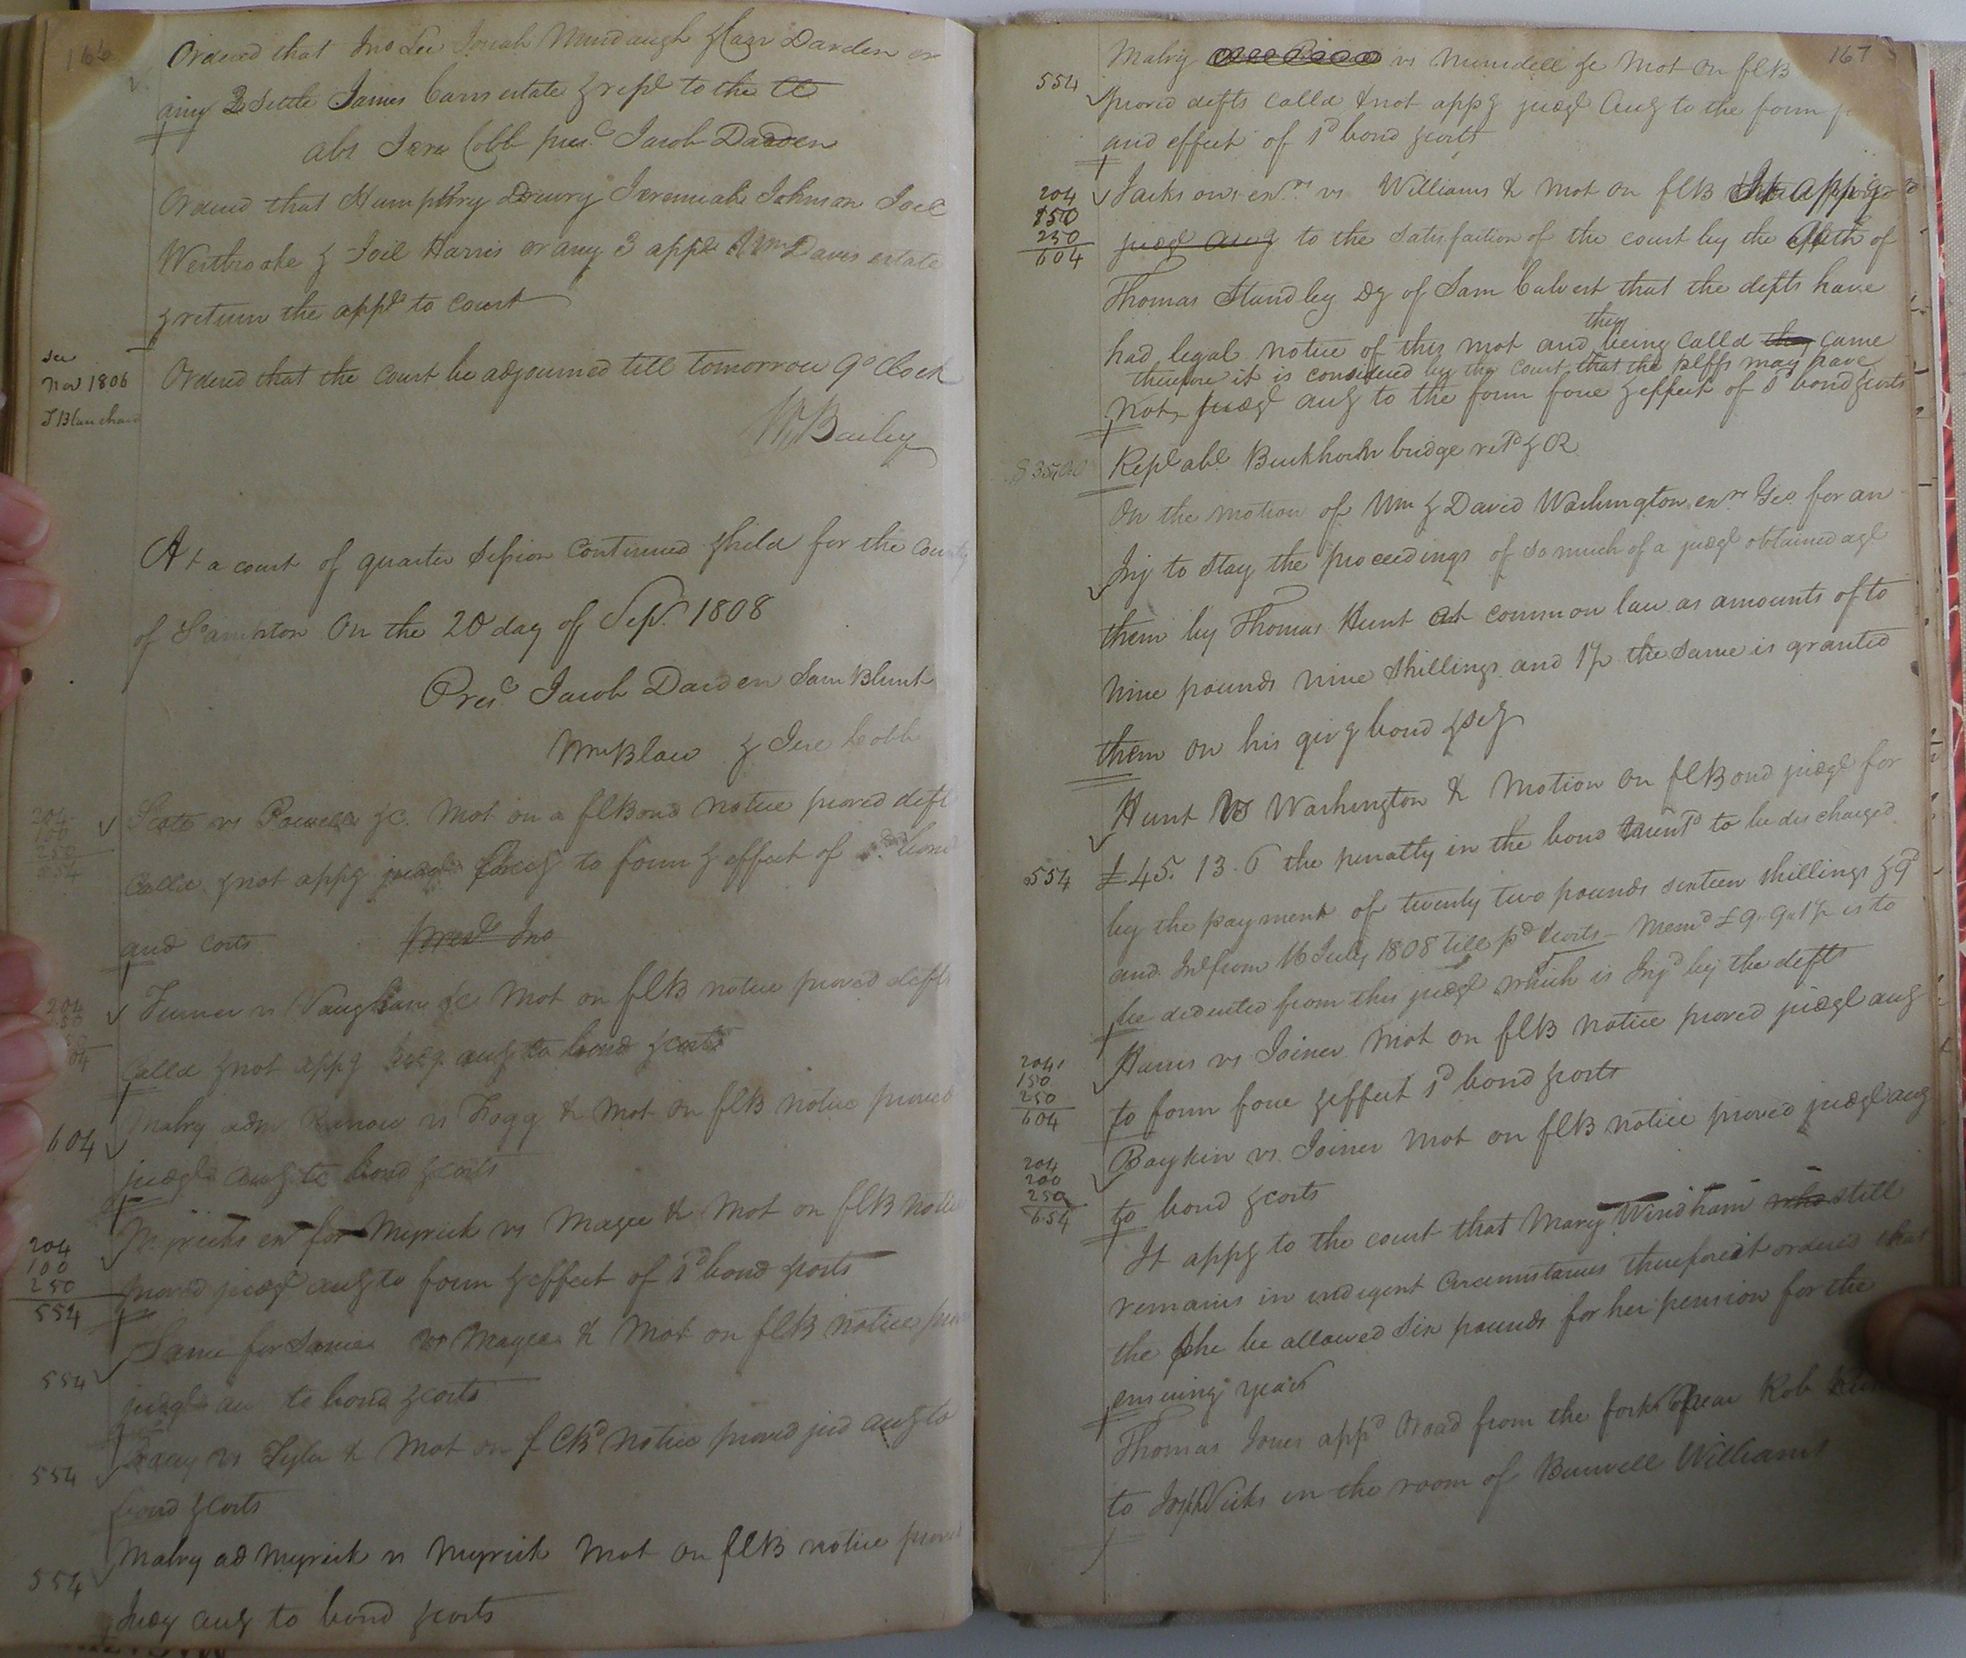 166
Ordered that Jno Lee Josiah Murdaugh & Eazr Darden or
any 2 Settle James Carrs estate & repl to the Ct
abs Jere Cobb pres.t Jacob Darden
Ordered that Humphry Drury Jeremiah Johnson Joel
Westbrooke & Joil Harris or any 3 appe Wm Davis estate
& return the appt to court
see
Nov 1806
J Blanchard
Ordered that the Court be adjourned till tomorrow 9 oClock
W Bailey
At a court of quarter Session Continued & held for the County
of S.ampton On the 20 day of Sepr. 1808
Pres.t Jacob Darden Sam Blunt
Wm Blow & Jere Cobb
204
100
250
554
Scott vs Powell &c. Mot on a flBond notice proved deft
Calld & not appg judgt to form & effect of bond
and costs Prest Jno
204
Turner vs Vaughan &c Mot on flB notice proved defts
Calld & not appg aug to bond & costs
604
Malry adm vs Fogg & Mot on flB notice proved
judgt aug to bond & costs
204
100
250
554
Myricks exr for Myrick vs Magee & Mot on flB notice
proved judgt aug to form & effect of sd bond & costs
554
Same for Same vs Magee & Mot on flB notice
judgt au to bond & costs
554
vs Tyler & Mot on f CBd notice proved jud aug to
bond & costs
554
Malry ad Myrick vs Myrick Mot on flB notice proved
Judg aug to bond & costs
167
554
Malry vs Mundell &c Mot on flB
proved defts calld & not appg judgt Aug to the form
and effect of sd bond & costs
204
150
250
604
Jacksons exrs vs Williams & Mot on flB It appg
judgt aug to the satisfaction of the court by the Oath of
Thomas Standley Dy of Sam Calvert that the defts have
had legal notice of this mot and they being Calld they came
therefore it is considered by the Court that the plffs may have
not judgt aug to the form force & effect of sd bond & costs
$35,00
Repl abl Buckhorn bridge retd & OR
On the motion of Wm & David Washington exrs Geo for an
Inj to stay the proceedings of so much of a judgt obtained agt
them by Thomas Hunt at common law as amounts of to
nine pounds nine shillings and 1½ the same is granted
them on his givg bond & scy
554
Hunt vs Washington & Motion on flBond judgt for
£45. 13. 6 the penalty in the bond ment.d to be discharged
by the payment of twenty two pounds sixteen shillings & 9d
and Int from 16 July 1808 till pd & costs - Memd £9. 9. 1½ is to
be deducted from this judgt which is Injd by the defts
204
150
250
604
Harris vs Joiner Mot on flB notice proved judgt aug
to form force & effect sd bond & costs
204
200
250
654
Boykin vs Joiner Mot on flB notice proved judgt aug
to bond & costs
It appg to the court that Mary Windham who still
remains in indigent Circumstances therefore it ordered that
the she be allowed six pounds for her pension for the
ensuing year
Thomas Jones appd Road from the fork near Rob
to Joseph Vicks in the room of Burwell Williams